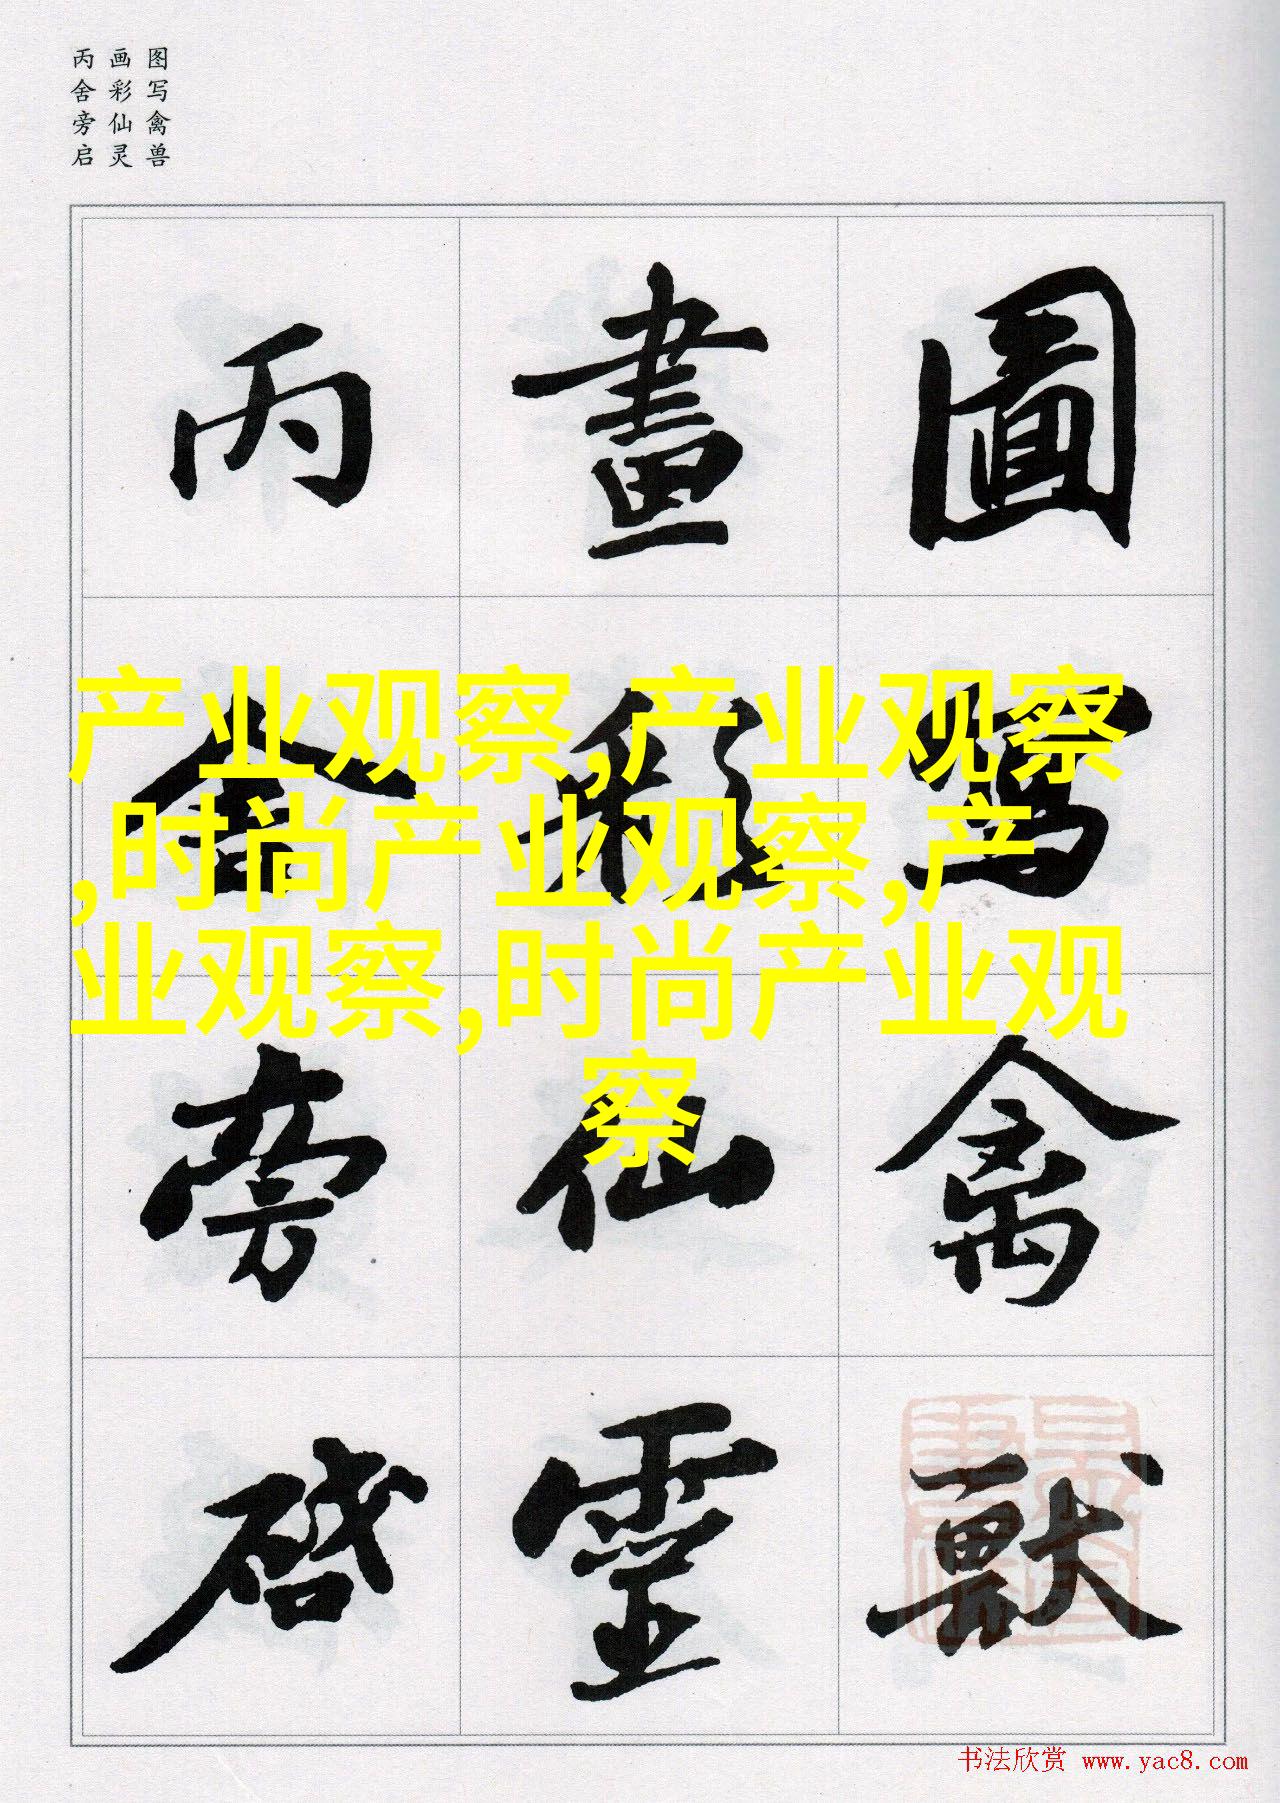 图写禽兽
画彩仙灵
丙舍旁启
圖寫禽獸
畫彩仙靈
丙舍旁啓
产业观察,产业观察
,时尚产业观察,产
业观察,时尚产业观
察
书法欣赏 www.yac8.com